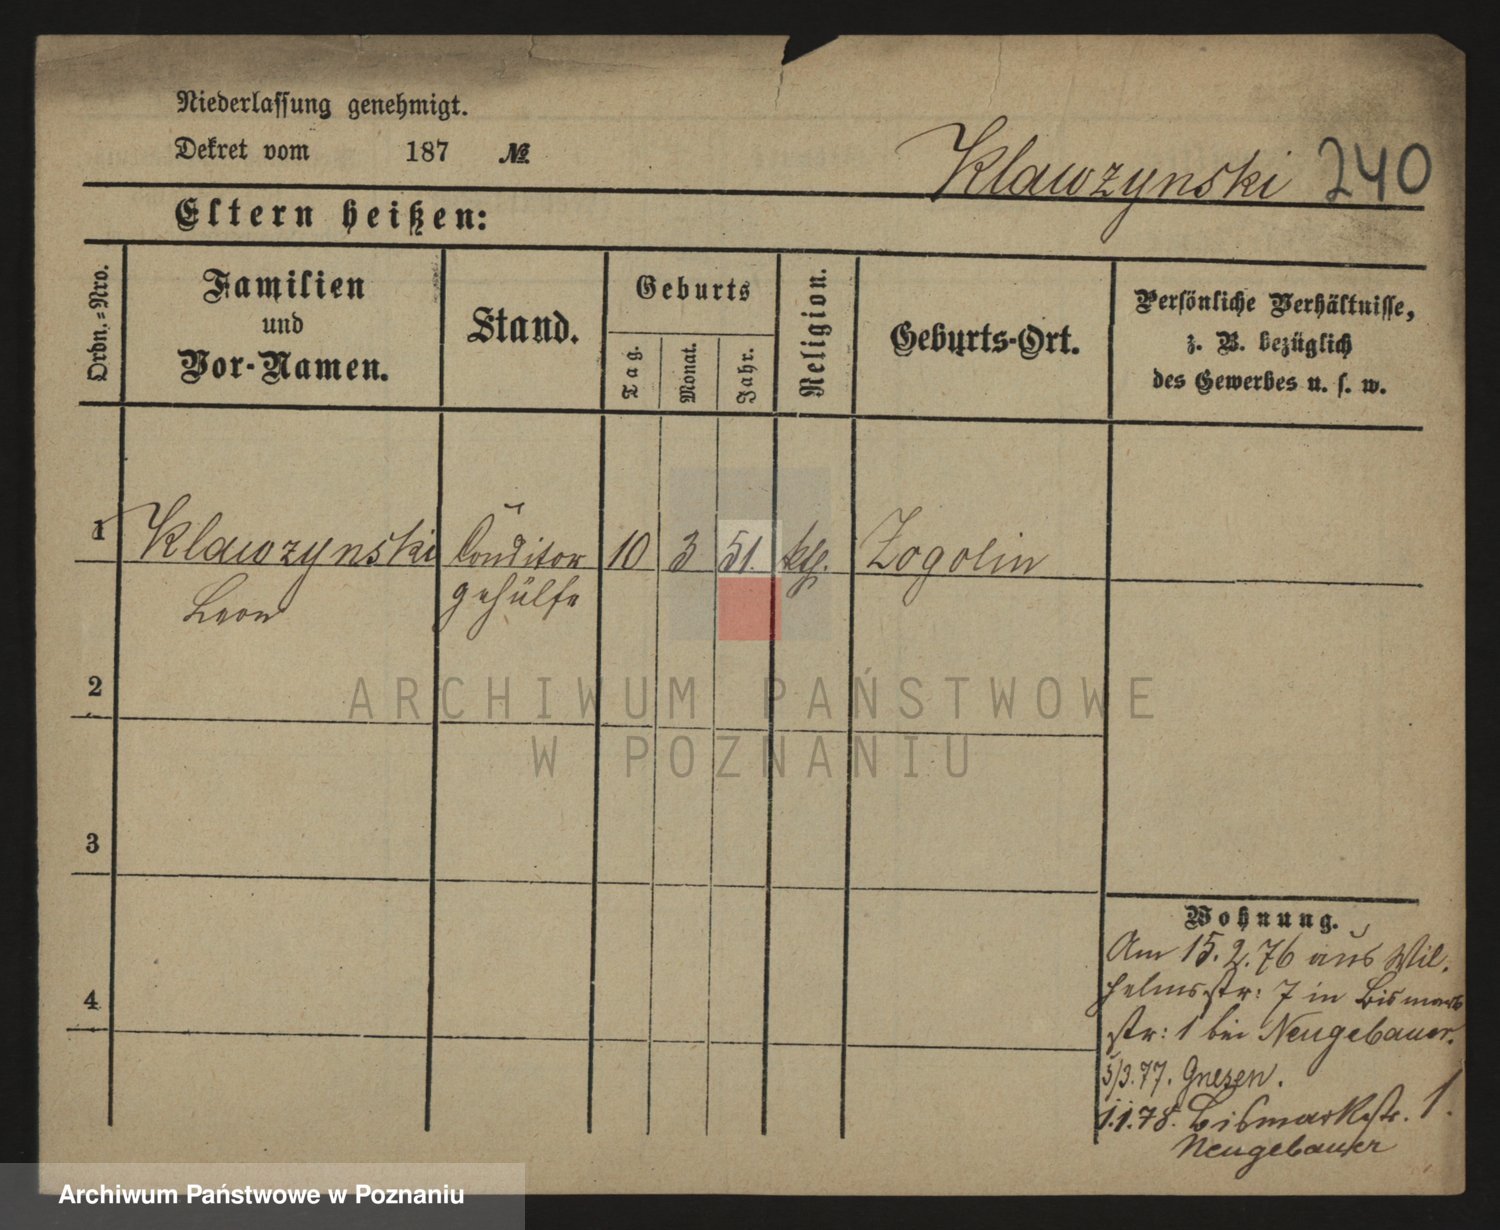 Niederlassung genehmigt.
Dekret vom 187 №
Klawzynski 240
Eltern heißen:
Ordn.=Nro.
Familien
und
Vor-Namen.
Stand.
Geburts
Tag.
Monat.
Jahr.
Religion.
Geburts-Ort.
Persönliche Verhältnisse,
z. B. bezüglich
des Gewerbes u. s. w.
1 Klawzynski Conditor 10 3 51. kth. Zogolin
Leon gehülfe
2
3
4
Wohnung.
Am 15.2.76 aus Wil-
helmsstr: 7 in Bismark
str: 1 bei Neugebauer.
5/3.77. Gnesen.
1.1.78. Bismarkstr. 1.
Neugebauer
ARCHIWUM PAŃSTWOWE
W POZNANIU
Archiwum Państwowe w Poznaniu